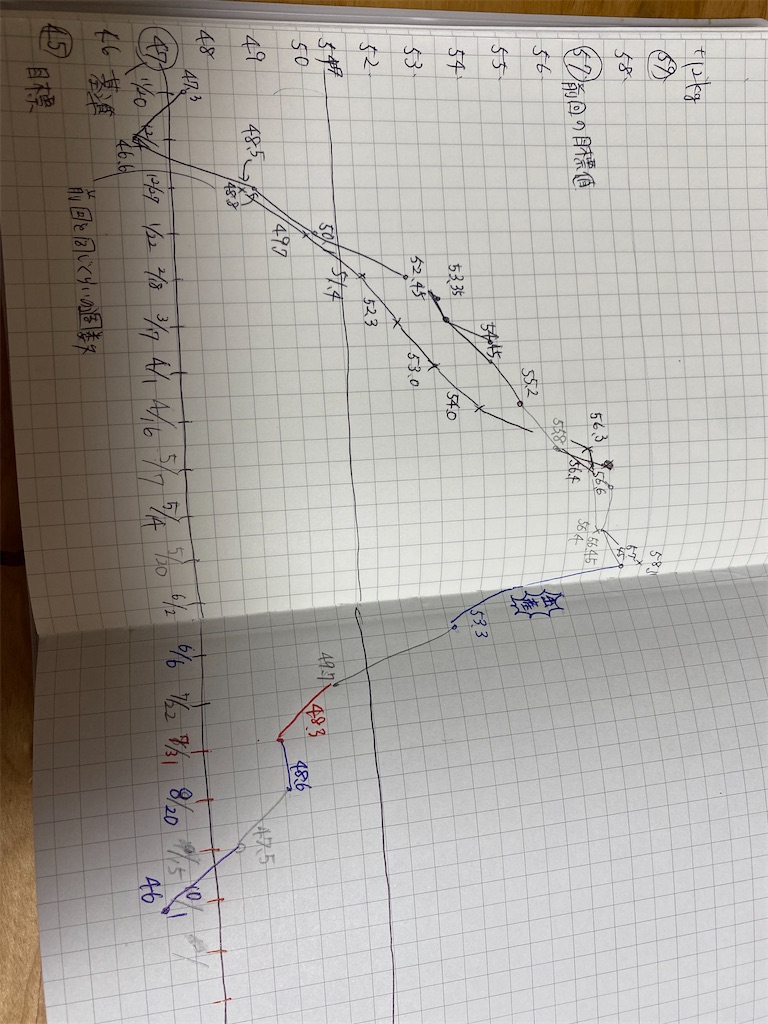 +12kg
59
58.
57 前回の目標値
56
55.
54.
53.
52.
51
50
49
48
47
46 基準
45
目標
47.3
46.6
48.5
48.8
49.7
50.
51.4
52.45
52.3
53.35
53.0
54.15
54.0
55.2
55.8
56.3
56.4
56.6
56.4
56.45
58.1
53.3
49.7
48.3
48.6
47.5
46
11/20
1/22
2/8
3/17
4/1
4/16
5/7
5/14
5/20
6/2
6/6
7/22
7/31
8/20
9/15
10/1
前回と同じくらいの週数